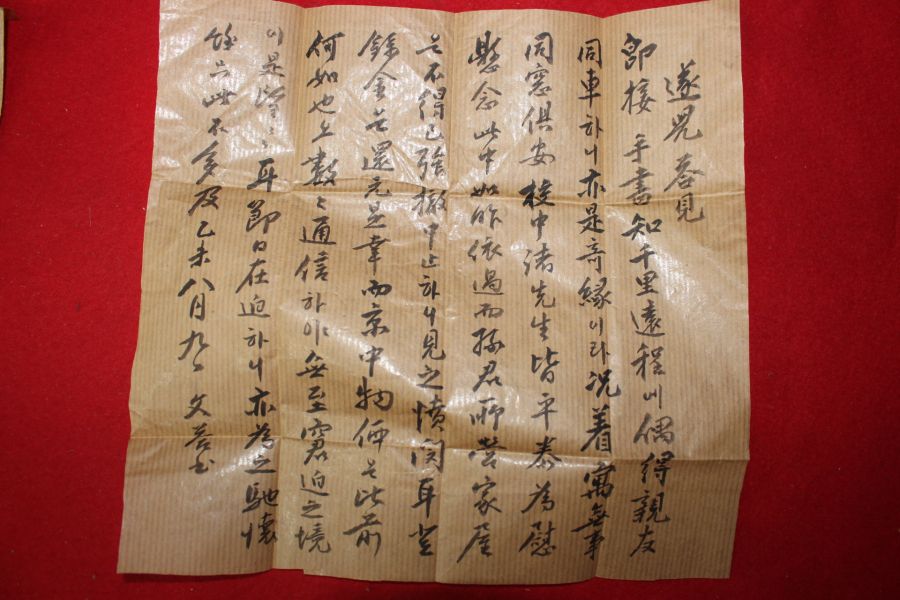 遂兒答見
卽接手書知千里遠程에偶得親友
同車하니亦是奇緣이라況着寓無事
同窓俱安校中諸先生皆平泰爲慰
懸念此中如昨依過而孫君所營家屋
은不得已強撤中止하니見之憤悶耳
餘金은還元是幸而京中物価은比前
何如也오數〻通信하야無至窘迫之境
이是望〻耳節日在迫하니亦爲之馳懷
餘只此不多及乙未八月九日 父答書